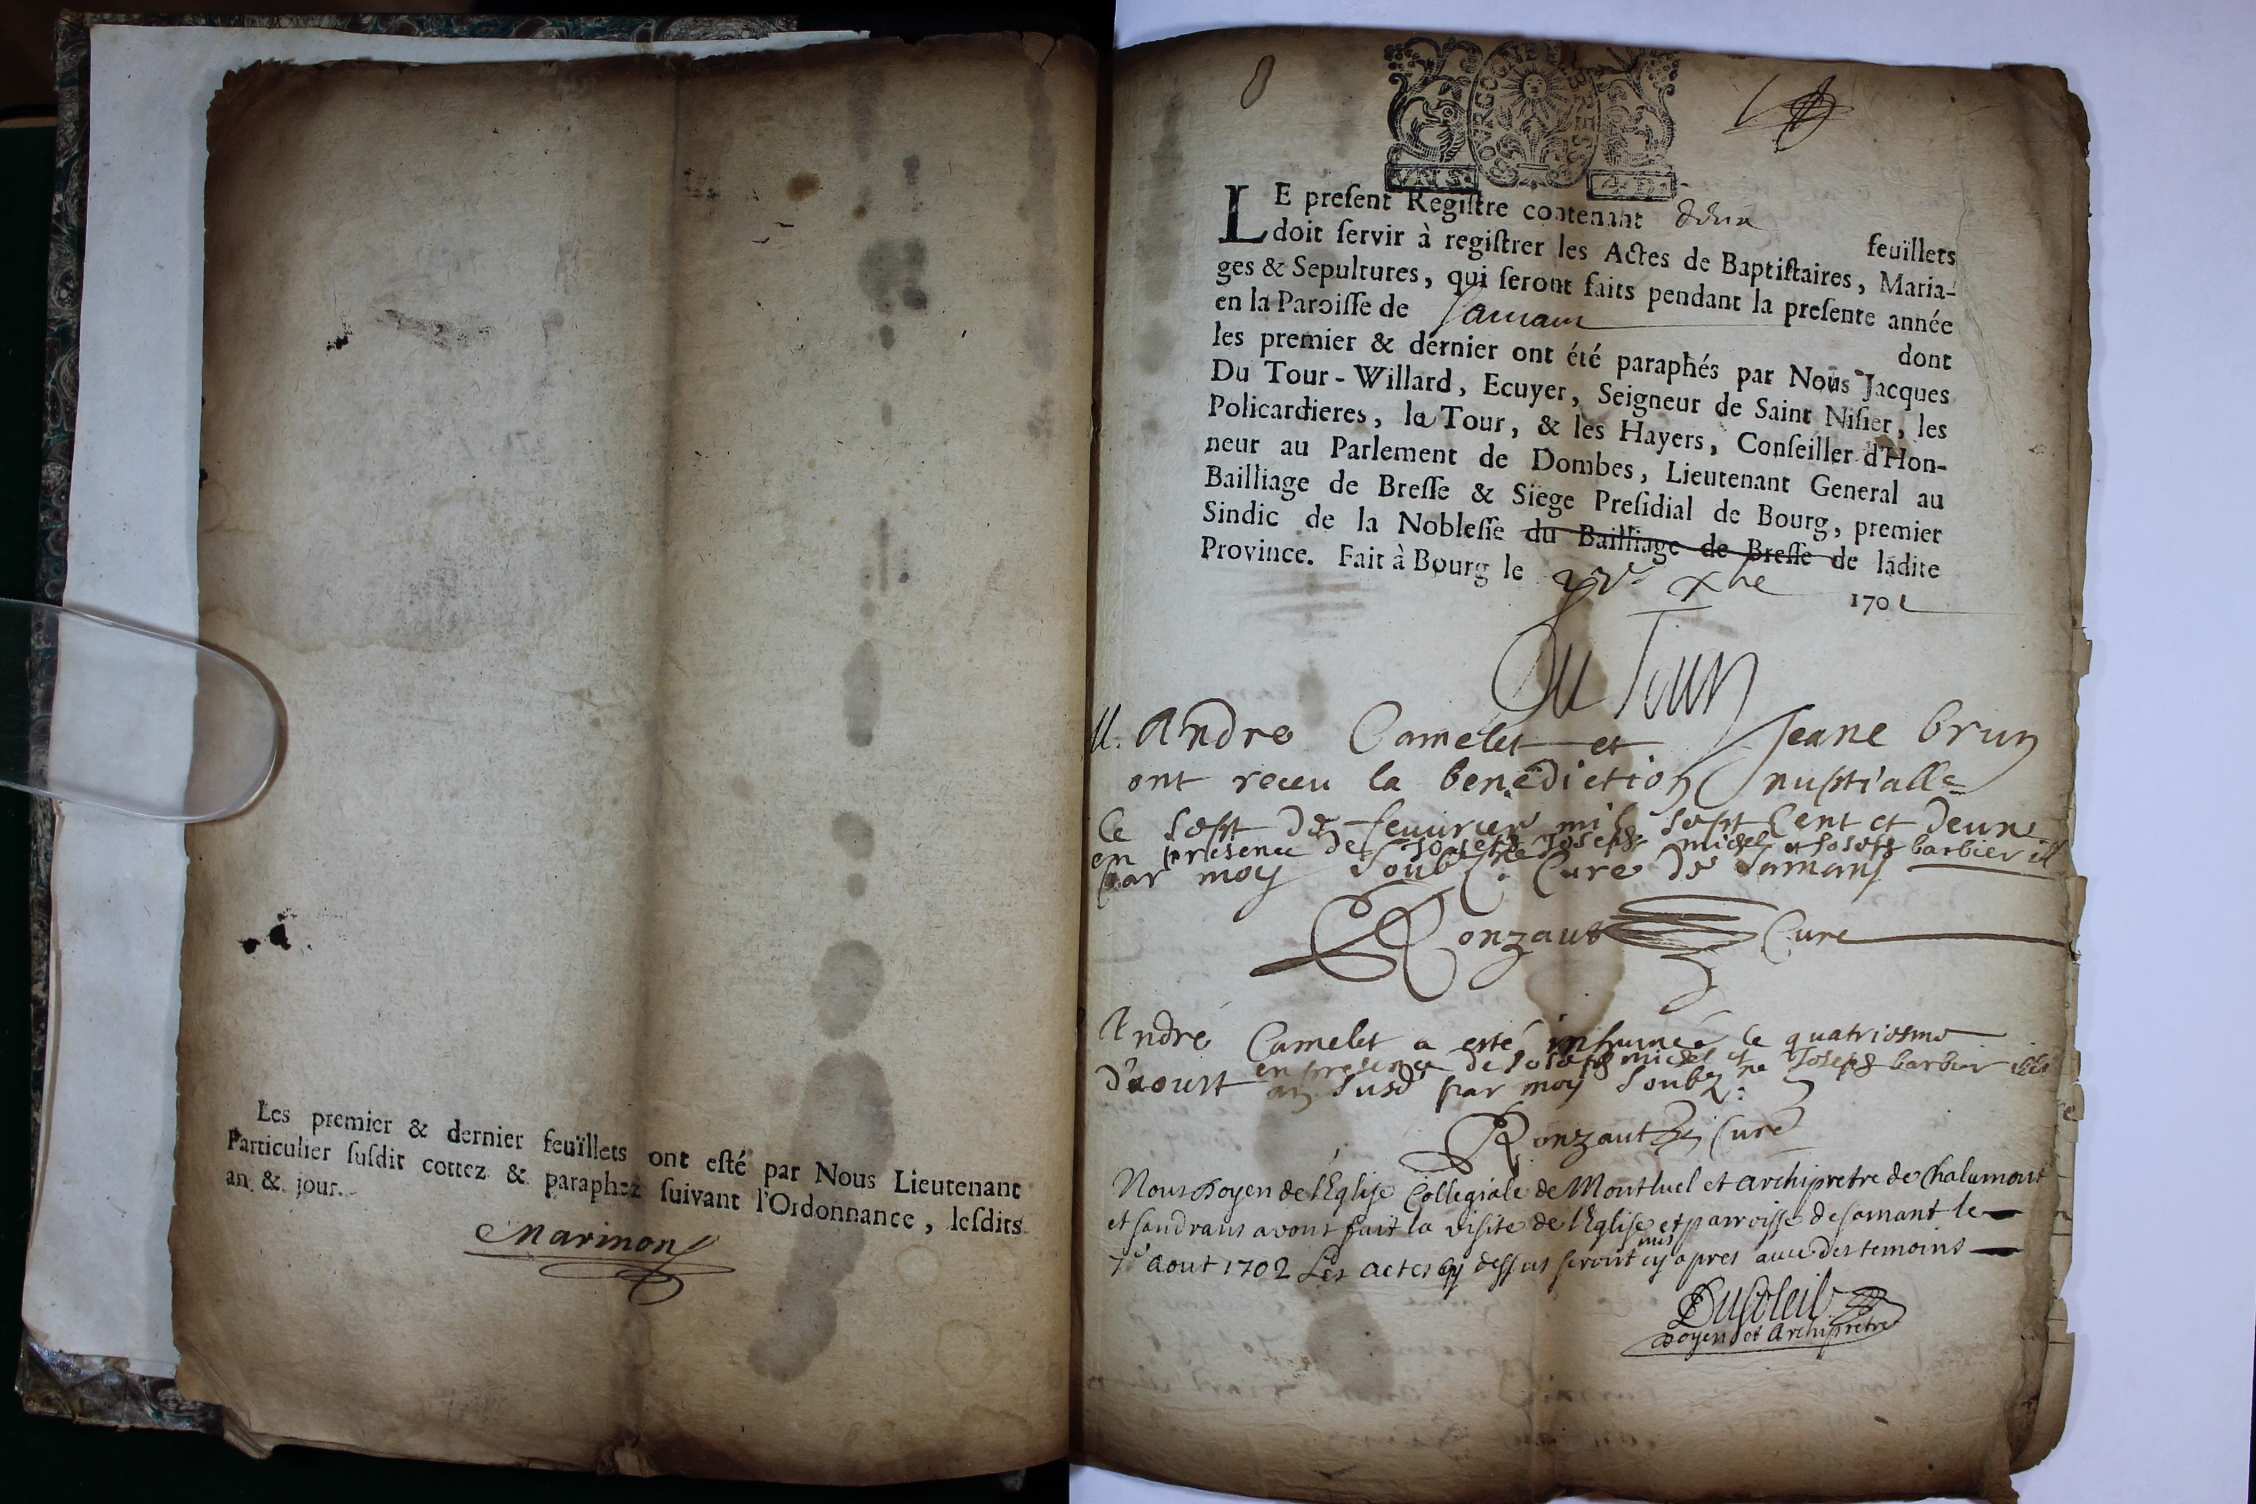 Les premier & dernier feuïllets ont esté par Nous Lieutenant
Particulier susdit cottez & paraphez suivant l'Ordonnance, lesdits
an & jour.
Marinon
BOURGOGNE BRESSE
VNS. 4.D.
LE present Registre contenant deux feuïllets
doit servir à registrer les Actes de Baptistaires, Maria-
ges & Sepultures, qui seront faits pendant la presente année
en la Paroisse de Samans dont
les premier & dernier ont été paraphés par Nous Jacques
Du Tour-Willard, Ecuyer, Seigneur de Saint Nisier, les
Policardieres, la Tour, & les Hayers, Conseiller d'Hon-
neur au Parlement de Dombes, Lieutenant General au
Bailliage de Bresse & Siege Presidial de Bourg, premier
Sindic de la Noblesse du Bailliage de Bresse de ladite
Province. Fait à Bourg le xbre 1701
Du Tour
M. Andre Camelet et Jeane brun
ont receu la benediction nuptialle
le sept de feuurier mil sept Cent et deux
en presence de Joseph michel et Joseph barbier ill
par moy soubz. Cure de Samans
Ronzaut Cure
André Camelet a esté inhumé le quatriesme
en presence de Joseph michel et de Joseph barbier illi
d'aoust an susd par moy soubz.
Ronzaut Cure
Nous Doyen de l'Eglise Collegiale de Montluel et archipretre de Chalamont
et sandrans avons fait la visite de l'Eglise et parroisse de samant le
7e aout 1702 Les actes cy dessus seront mis cy apres avec des temoins
Dusoleil
Doyen et Archipretre